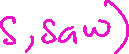 s, saw)